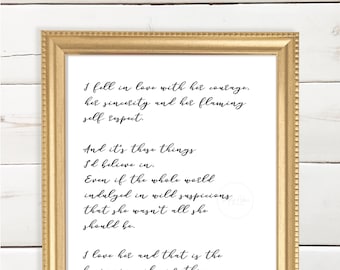 I fell in love with her courage,
her sincerity and her flaming
self respect.
And it's these things
I'd believe in.
Even if the whole world
indulged in wild suspicions
that she wasn't all she
should be.
I love her and that is the